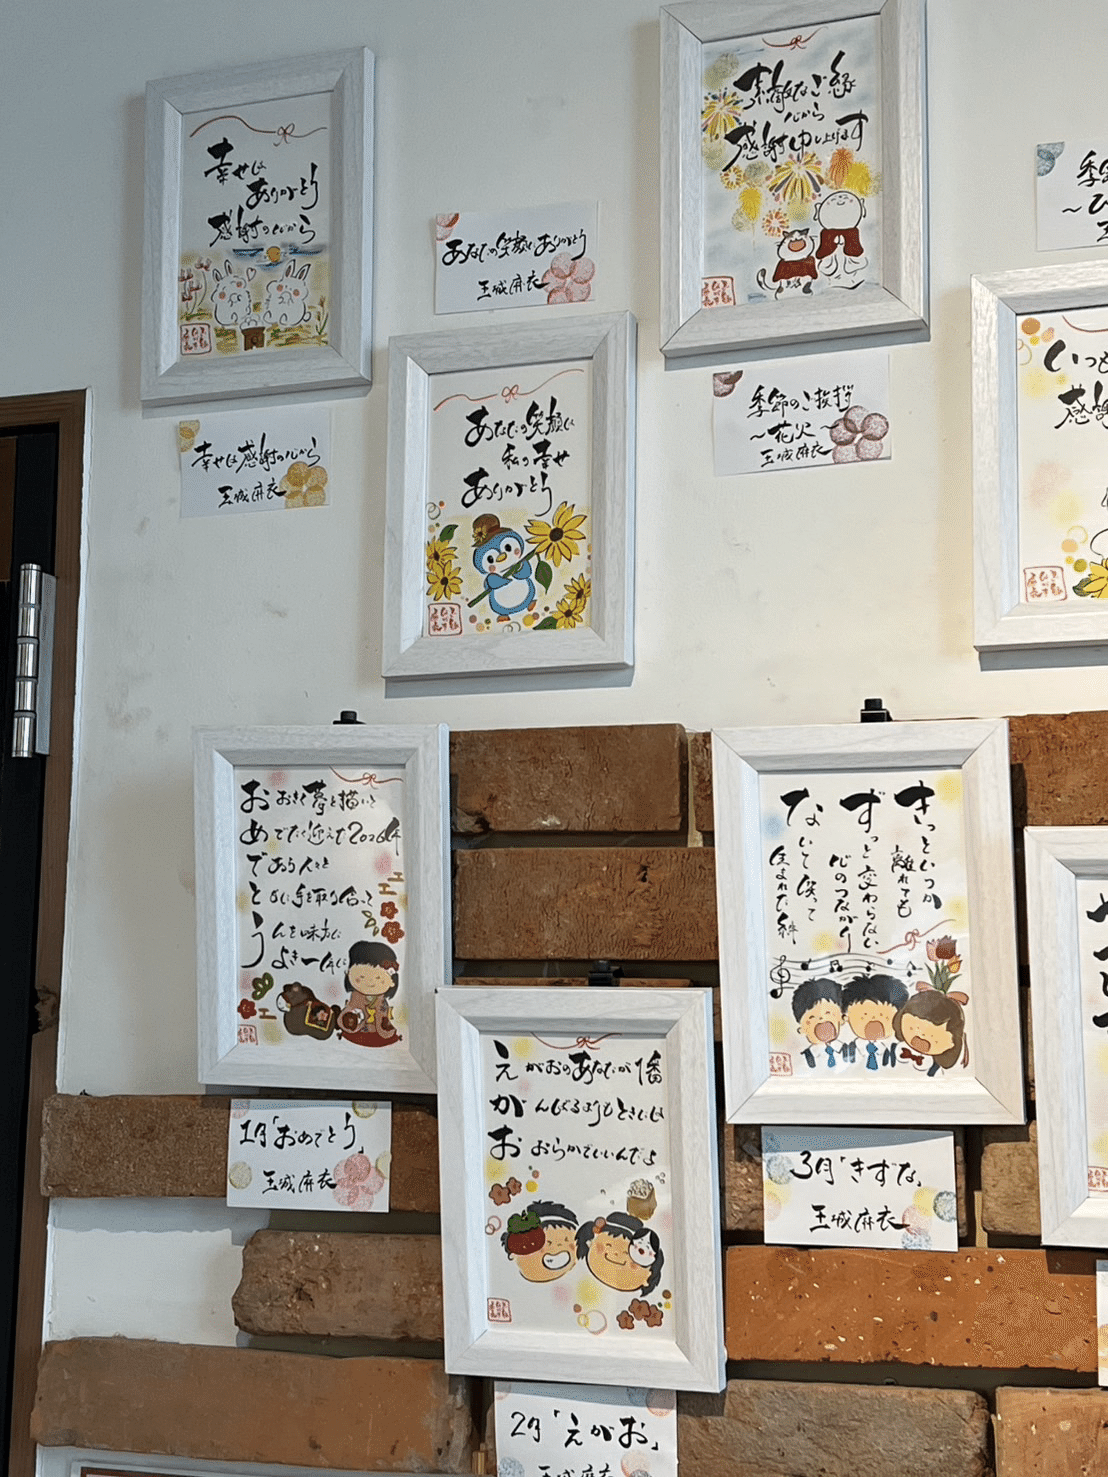 幸せは
ありがとう
感謝の心から
幸せは感謝の心から
玉城麻衣
あなたの笑顔にありがとう
玉城麻衣
あなたの笑顔は
私の幸せ
ありがとう
素敵なご縁
心から
感謝申し上げます
季節のご挨拶
～花火～
玉城麻衣
季節
～ひ
玉
いつも
感謝
おおきく夢を描いて
めでたく迎えた2026年
であう人々と
ともに手を取り合って
うんを味方に
よき一年に
1月「おめでとう」
玉城麻衣
えがおのあなたが1番
がんばるよりもときには
おおらかでいいんだよ
2月「えがお」
玉城麻衣
きっといつか
離れても
ずっと変わらない
心のつながり
ないて笑って
生まれた絆
3月「きずな」
玉城麻衣